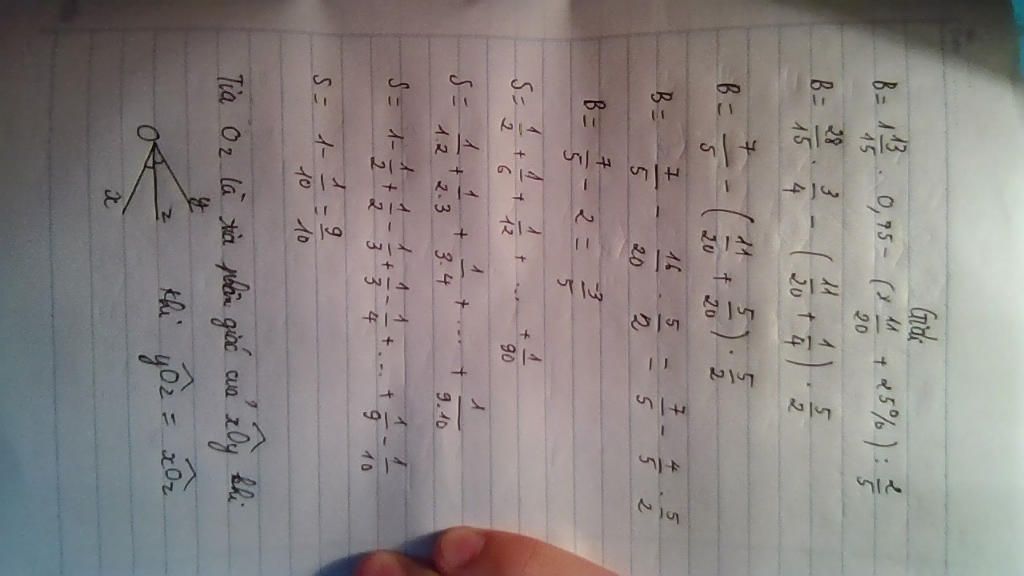 Giải
B = 1 13/15 . 0,75 - (11/20 + 25%) : 2/5
B = 28/15 . 3/4 - (11/20 + 1/4) . 5/2
B = 7/5 - (11/20 + 5/20) . 5/2
B = 7/5 - 16/20 . 5/2 = 7/5 - 4/5 . 5/2
B = 7/5 - 2 = -3/5
S = 1/2 + 1/6 + 1/12 + ... + 1/90
S = 1/12 + 1/2.3 + 1/3.4 + ... + 1/9.10
S = 1 - 1/2 + 1/2 - 1/3 + 1/3 - 1/4 + ... + 1/9 - 1/10
S = 1 - 1/10 = 9/10
Tia Oz là phân giác của xOy khi
khi yOz = xOz
O
y
z
x